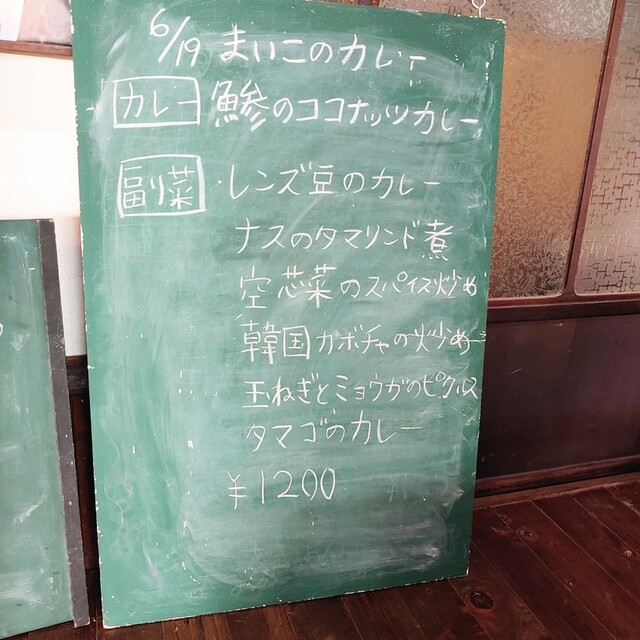 6/19 まいこのカレー
カレー 鯵のココナッツカレー
副菜 レンズ豆のカレー
ナスのタマリンド煮
空芯菜のスパイス炒め
韓国カボチャの炒め
玉ねぎとミョウガのピクルス
タマゴのカレー
¥1200